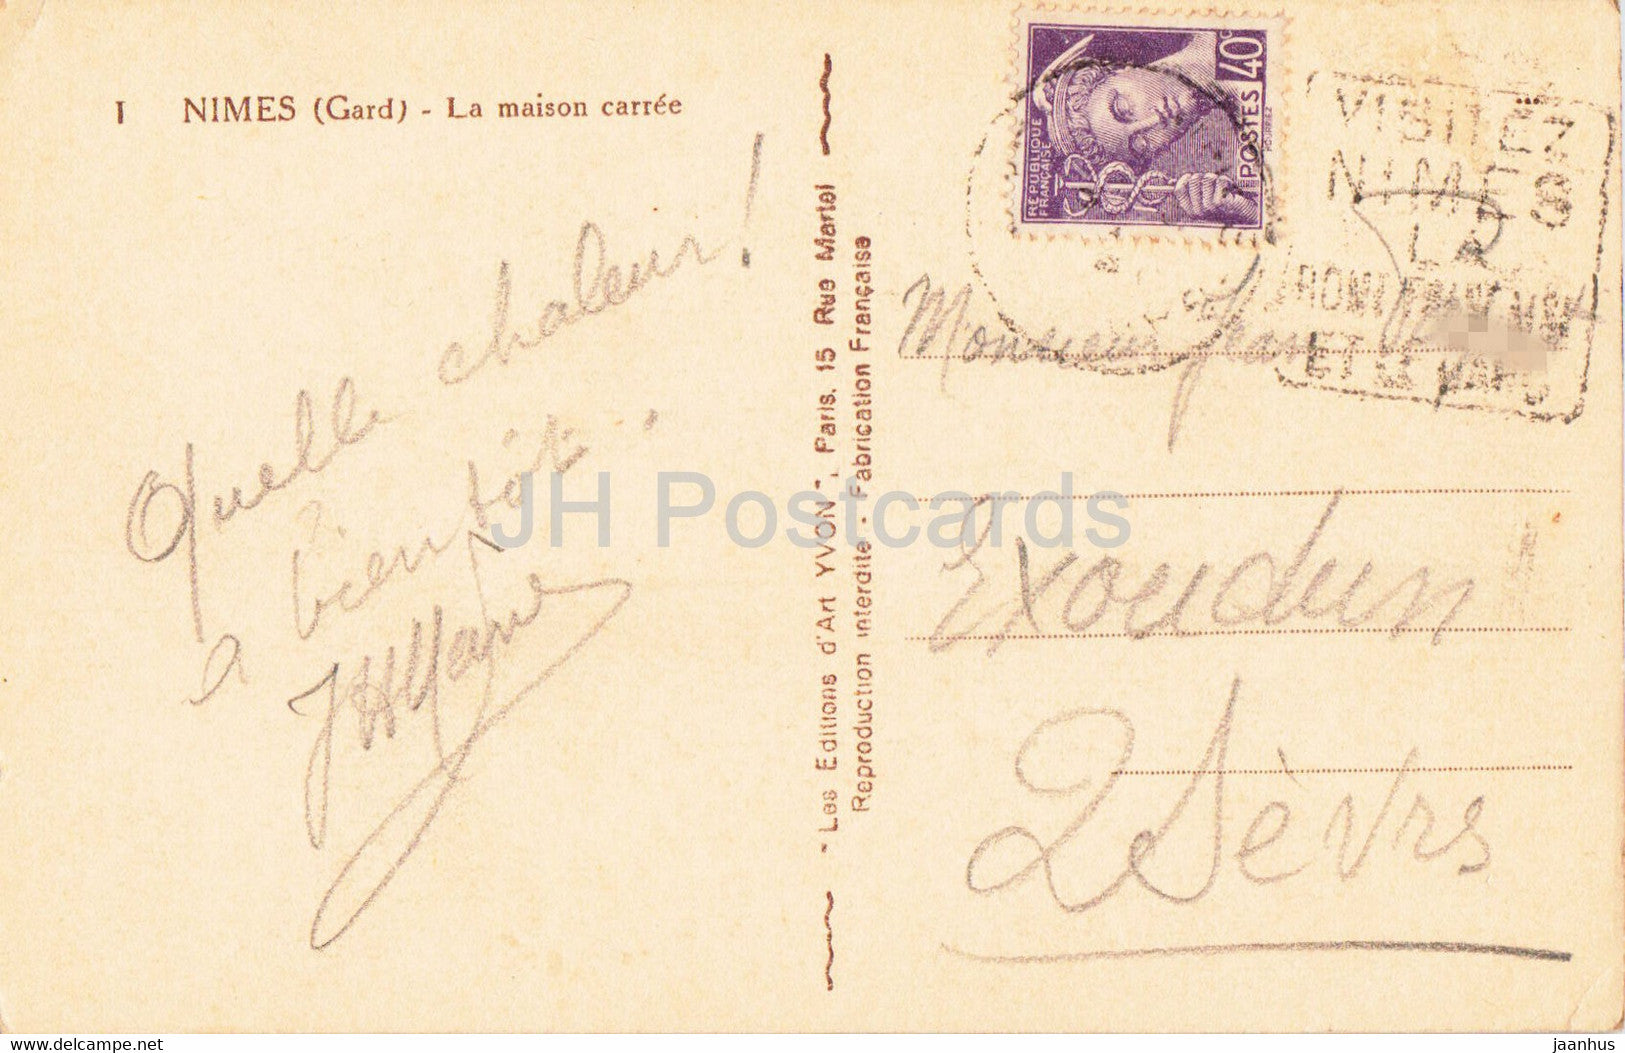 I NIMES (Gard) - La maison carrée
Quelle chaleur!
a bientôt.
- Les Editions d'Art YVON", Paris. 15 Rue Martel
Reproduction Interdite - Fabrication Française
REPUBLIQUE
FRANÇAISE
POSTES 40c
VISITEZ
NIMES
LA
ROME FRANÇAISE
ET LE
SON
Monsieur Jean
Exoudun
2 Sèvrs
JH Postcards
www.delcampe.net
jaanhus